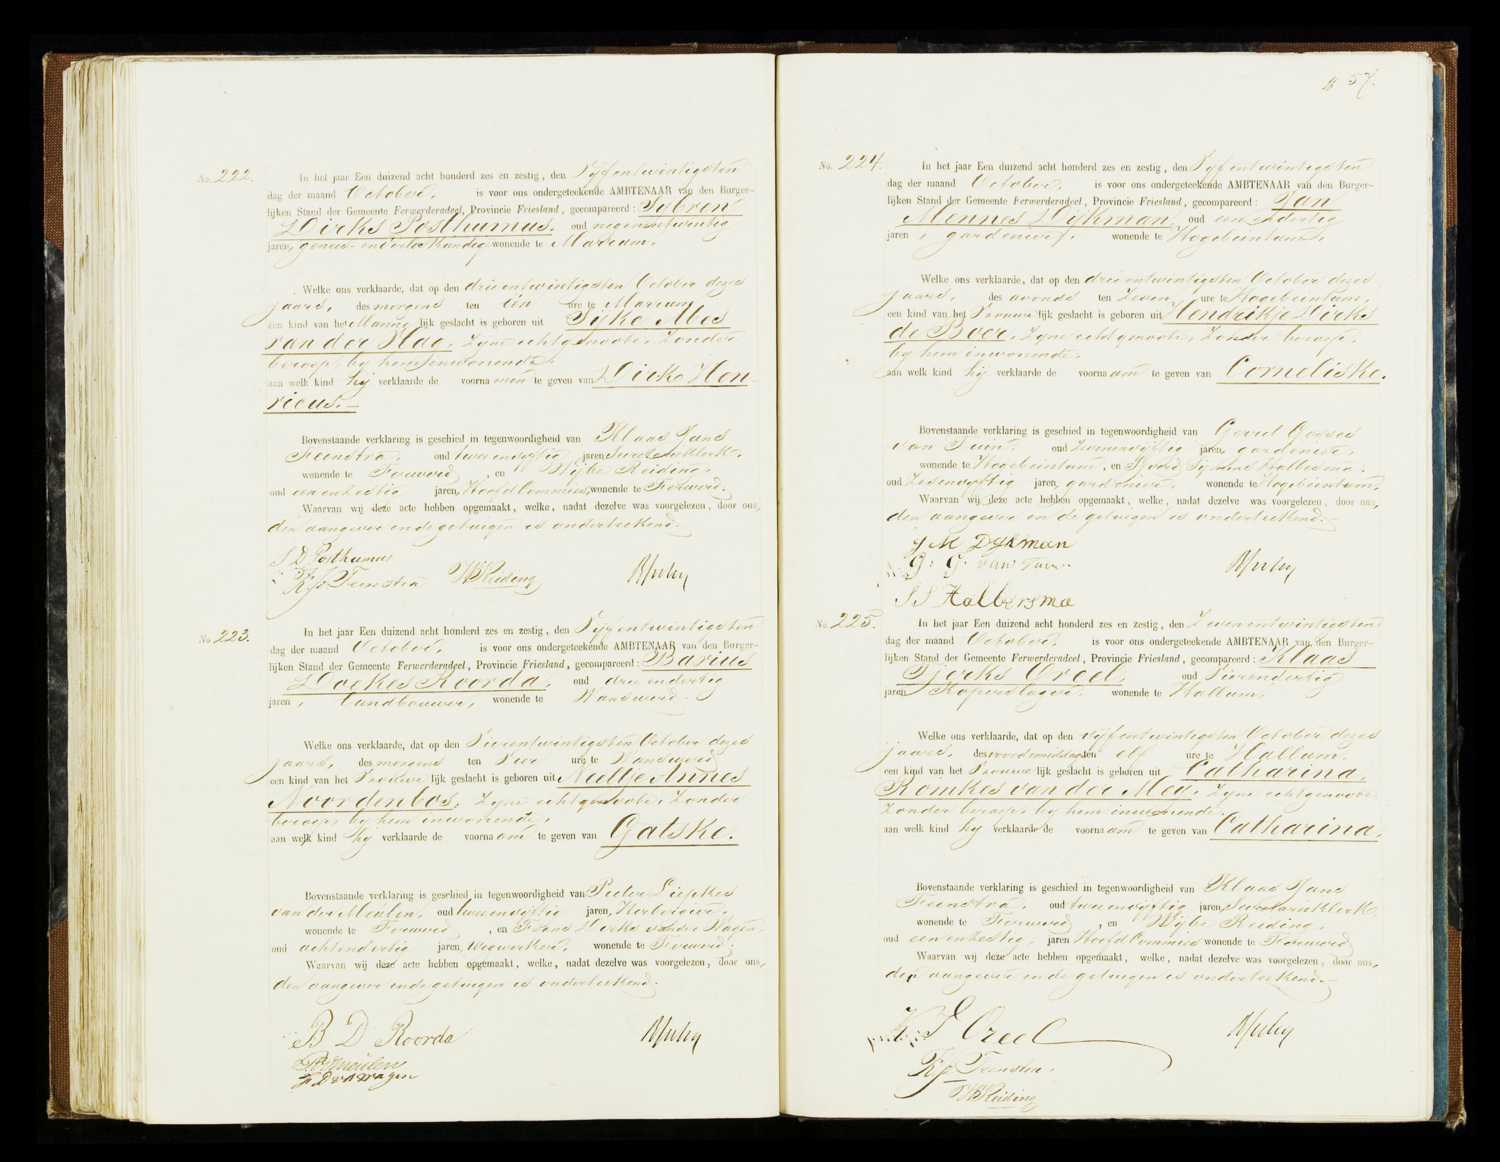 No. 222.
In het jaar Een duizend acht honderd zes en zestig, den Vyfentwintigsten
dag der maand October, is voor ons ondergeteekende AMBTENAAR van den Burger-
lijken Stand der Gemeente Ferwerderadeel, Provincie Friesland, gecompareerd: Sybren
Dirks Posthumus. oud negenentwintig
jaren, genees- en verloskundig wonende te Marrum.
Welke ons verklaarde, dat op den drieentwintigsten October dezes
jaars, des morgens ten één ure te Marrum
een kind van het Manne lijk geslacht is geboren uit Sijke Abes
van der Haag, zyne echtgenoote, zonder
beroep, by hem inwonende
aan welk kind hij verklaarde de voorna men te geven van Dirk Hen-
ricus.
Bovenstaande verklaring is geschied in tegenwoordigheid van Klaas Jans
Feenstra, oud tweeenvyftig jaren, Secretarieklerk,
wonende te Ferwerd, en Wybe Reiding,
oud eenenzestig jaren, Hoofd Commies, wonende te Ferwerd.
Waarvan wij deze acte hebben opgemaakt, welke, nadat dezelve was voorgelezen, door ons,
den aangever en de getuigen is onderteekend.
S D Posthumus
Kjs Feenstra WReiding
No. 223.
In het jaar Een duizend acht honderd zes en zestig, den Vyfentwintigsten
dag der maand October, is voor ons ondergeteekende AMBTENAAR van den Burger-
lijken Stand der Gemeente Ferwerderadeel, Provincie Friesland, gecompareerd: Barius
Doekes Roorda, oud drieendertig
jaren, landbouwer, wonende te Wanswerd.
Welke ons verklaarde, dat op den Vierentwintigsten October dezes
jaars, des morgens ten Vier ure te Wanswerd
een kind van het Vrouwe lijk geslacht is geboren uit Neeltje Annes
Noordenbos, zyne echtgenoote, zonder
beroep, by hem inwonende,
aan welk kind hij verklaarde de voorna am te geven van Gatske.
Bovenstaande verklaring is geschied in tegenwoordigheid van Pieter Liepkes
van der Meulen, oud tweeenvyftig jaren, Herbergier,
wonende te Ferwerd, en Frans Dirks van der Wagen,
oud achtendertig jaren, Verwer, wonende te Ferwerd.
Waarvan wij deze acte hebben opgemaakt, welke, nadat dezelve was voorgelezen, door ons,
den aangever en de getuigen is onderteekend.
B D Roorda
F. D v d Wagen
57.
No. 224.
In het jaar Een duizend acht honderd zes en zestig, den Vyfentwintigsten
dag der maand October, is voor ons ondergeteekende AMBTENAAR van den Burger-
lijken Stand der Gemeente Ferwerderadeel, Provincie Friesland, gecompareerd: Jan
Mennes Dykman, oud eenendertig
jaren, gardenier, wonende te Hogebeintum.
Welke ons verklaarde, dat op den drieentwintigsten October dezes
jaars, des avonds ten Zeven ure te Hogebeintum,
een kind van het Vrouwe lijk geslacht is geboren uit Hendrikje Dirks
de Boer, zyne echtgenoote, zonder beroep,
by hem inwonende,
aan welk kind hij verklaarde de voorna am te geven van Corneliske.
Bovenstaande verklaring is geschied in tegenwoordigheid van Gerrit Gosses
van Tuin, jaren, gardenier,
wonende te Hogebeintum, en Sjoerd Symens Halbersma,
oud Zesenvyftig jaren, gardenier, wonende te Hogebeintum,
Waarvan wij deze acte hebben opgemaakt, welke, nadat dezelve was voorgelezen, door ons,
den aangever en de getuigen is onderteekend.
J M Dykman
G. G. van Tuin.
S S Halbersma
No. 225.
In het jaar Een duizend acht honderd zes en zestig, den Zevenentwintigsten
dag der maand October, is voor ons ondergeteekende AMBTENAAR van den Burger-
lijken Stand der Gemeente Ferwerderadeel, Provincie Friesland, gecompareerd: Klaas
Tjerks Creel, oud Vierendertig
jaren, Koperslager, wonende te Hallum,
Welke ons verklaarde, dat op den vyfentwintigsten October dezes
jaars, des voordemiddags ten elf ure te Hallum,
een kind van het Vrouwe lijk geslacht is geboren uit Catharina,
Romkes van der Meu, zyne echtgenoote
zonder beroep, by hem inwonende,
aan welk kind hij verklaarde de voorna am te geven van Catharina,
Bovenstaande verklaring is geschied in tegenwoordigheid van Klaas Jans
Feenstra, oud tweeenvyftig jaren, Secretarieklerk,
wonende te Ferwerd, en Wybe Reiding,
oud eenenzestig, jaren Hoofd Commies wonende te Ferwerd
Waarvan wij deze acte hebben opgemaakt, welke, nadat dezelve was voorgelezen, door ons,
den aangever en de getuigen is onderteekend.
K T Creel
Kjs Feenstra.
WReiding